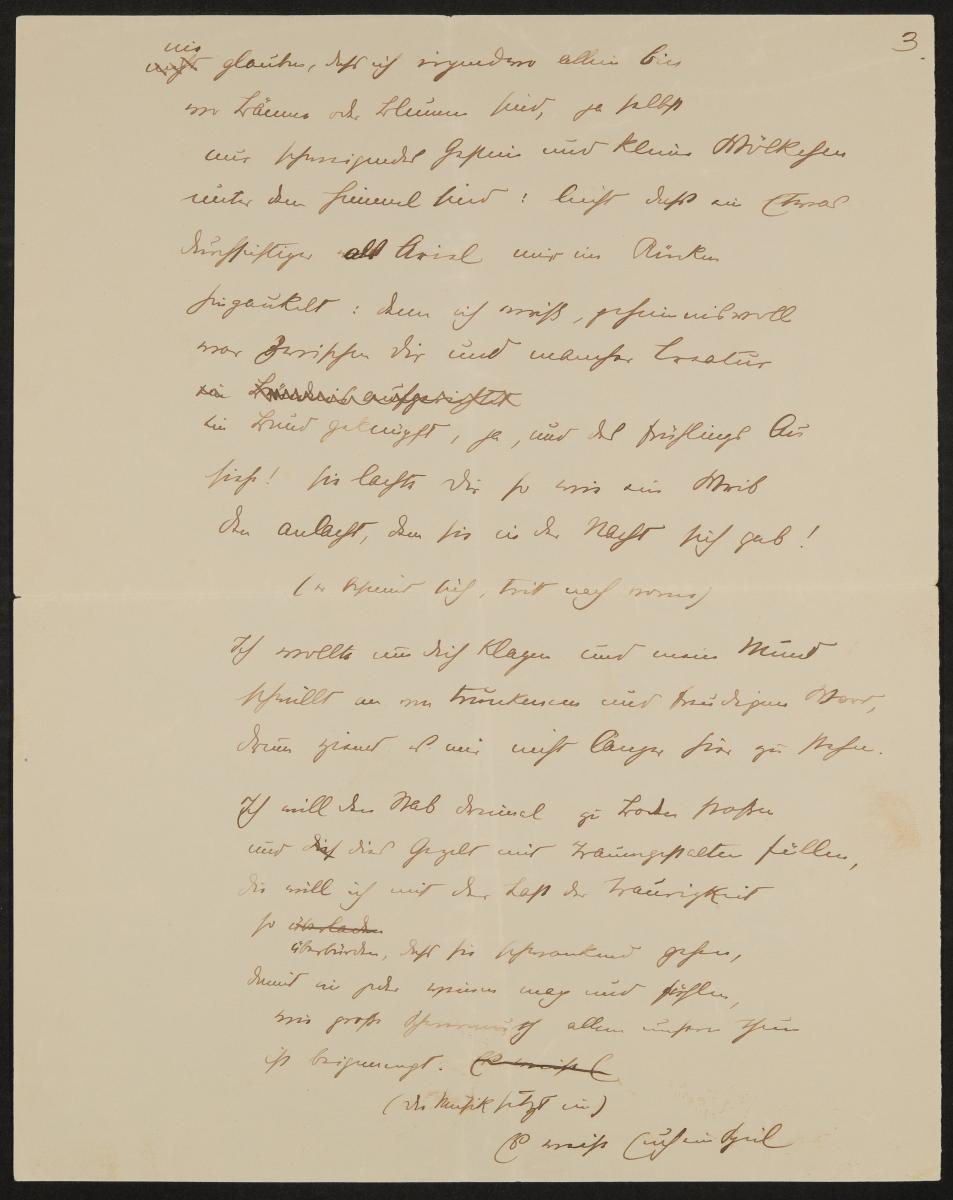 3.
nie
nicht glauben, dass ich irgendwo allein bin
wo Bäume oder Blumen sind, ja selbst
nur schweigendes Gestein und kleine Wölkchen
unter dem Himmel sind: leicht dass ein Etwas
durchsichtiger als Ariel mir im Rücken
hingaukelt: denn ich weiss, geheimnisvoll
war zwischen dir und mancher Creatur
ein Bündnis aufgerichtet
ein Bund geknüpft, ja, und des Frühlings Au
sieh! sie lachte dir so wie ein Weib
den anlacht, dem sie in der Nacht sich gab!
(er besinnt sich, tritt nach vorne)
Ich wollte um dich klagen und mein Mund
schwillt an von trunkenem und freudigem Wort,
drum ziemt es mir nicht länger hier zu stehn.
Ich will den Stab dreimal zu Boden stossen
und dies Gezelt mit Traumgestalten füllen,
die will ich mit der Last der Traurigkeit
so überladen
überbürden, dass sie schwankend gehen,
damit ein jeder weinen mag und fühlen,
wie grosse Schwermuth allem unsern Thun
ist beigemengt. Es weise E
(die Musik setzt ein)
Es weise Euch ein Spiel